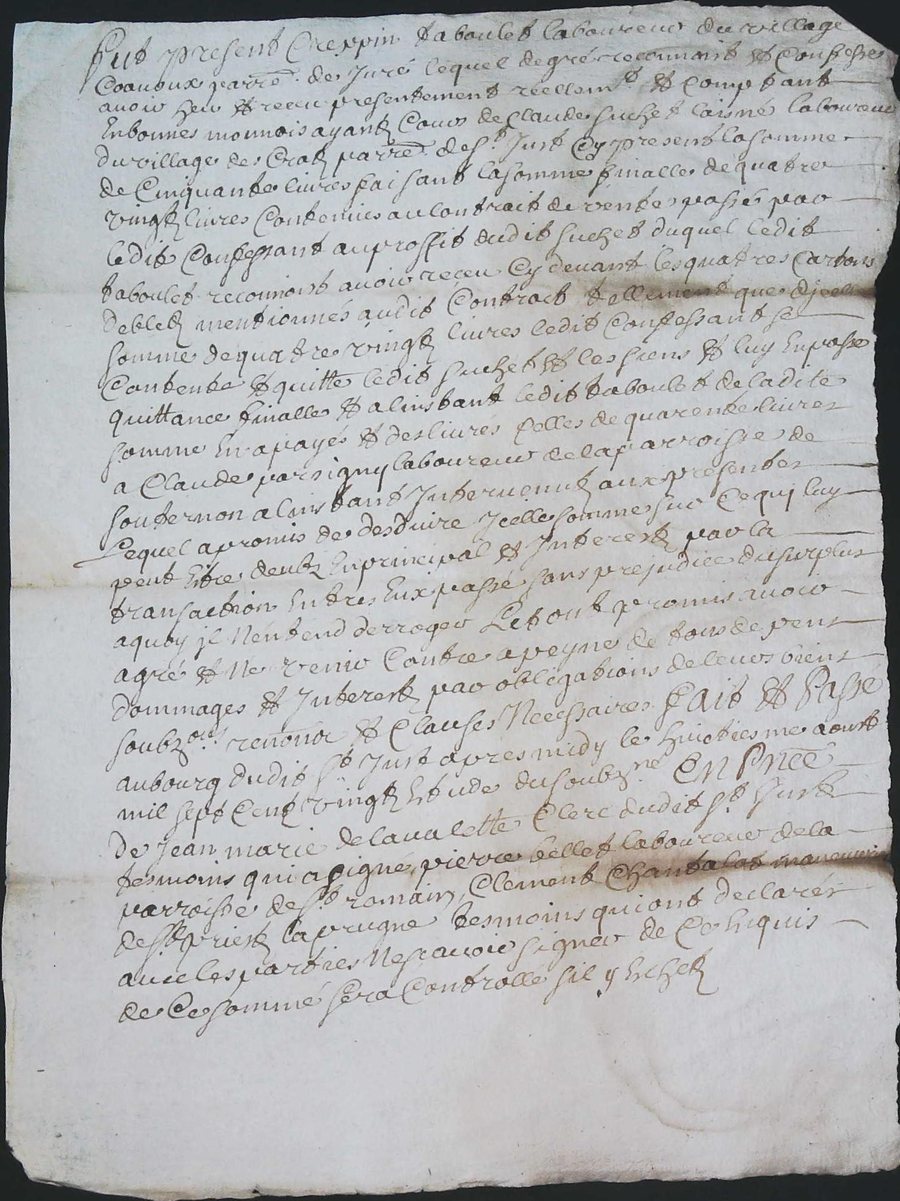 fut present Creppin taboulet laboureur du village
Coavoux parre. de Juré lequel de gré reconnoit et Confesse
avoir heu et receu presentement reellemt. et Comptant
En bonnes monnois ayantz Cours de Claude Suchet laisné laboureur
du village de Cratz parre. de st. Just Cy present la somme
de Cinquante livres faisant la somme finalle de quatre
vingtz livres Contenues au Contrait de vente passé par
ledit Confessant au proffit dudit Suchet duquel ledit
taboulet reconnoist avoir receu Cy devant les quatres Cartons
de bletz mentionnés audit Contract tellement que d'jcelle
somme de quatre vingtz livres ledit Confessant se
Contente et quitte ledit Suchet et les siens et luy En passe
quittance finalle et a linstant ledit taboulet de ladite
somme En a payés et deslivres Celles de quarente livres
a Claude parsigny laboureur de la parroisse de
Souternon a linstant Intervenutz aux presentes
Lequel a promis de desduire Jcelle somme sur Ce qui luy
peut Etre deubz En principal et Interestz par la
transaction Entres Eux passé sans prejudice du surplus
a quoy jl N'entend derroger Le tout promis avoir
agré et Ne venir Contre a peyne de tous depens
dommages et Interestz par obligations de leurs biens
soubzons. renonon et Clauses Necessaires fait et Passé
au bourg dudit st. Just apres midy le huictiesme aoust
mil sept Centz vingtz Etude du soubzné. En Pnce
de Jean marie de lavalette Clerc dudit st. Just
tesmoins qui a signe, pierre bellet laboureur de la
parroisse de st. romain, Clement Chantalot manouvrier
de st. priestz laprugne tesmoins qui ont declarés
avec les parties Ne scavoir signer de Ce Enquis
de Ce sommé sera Controllé sil y Echetz